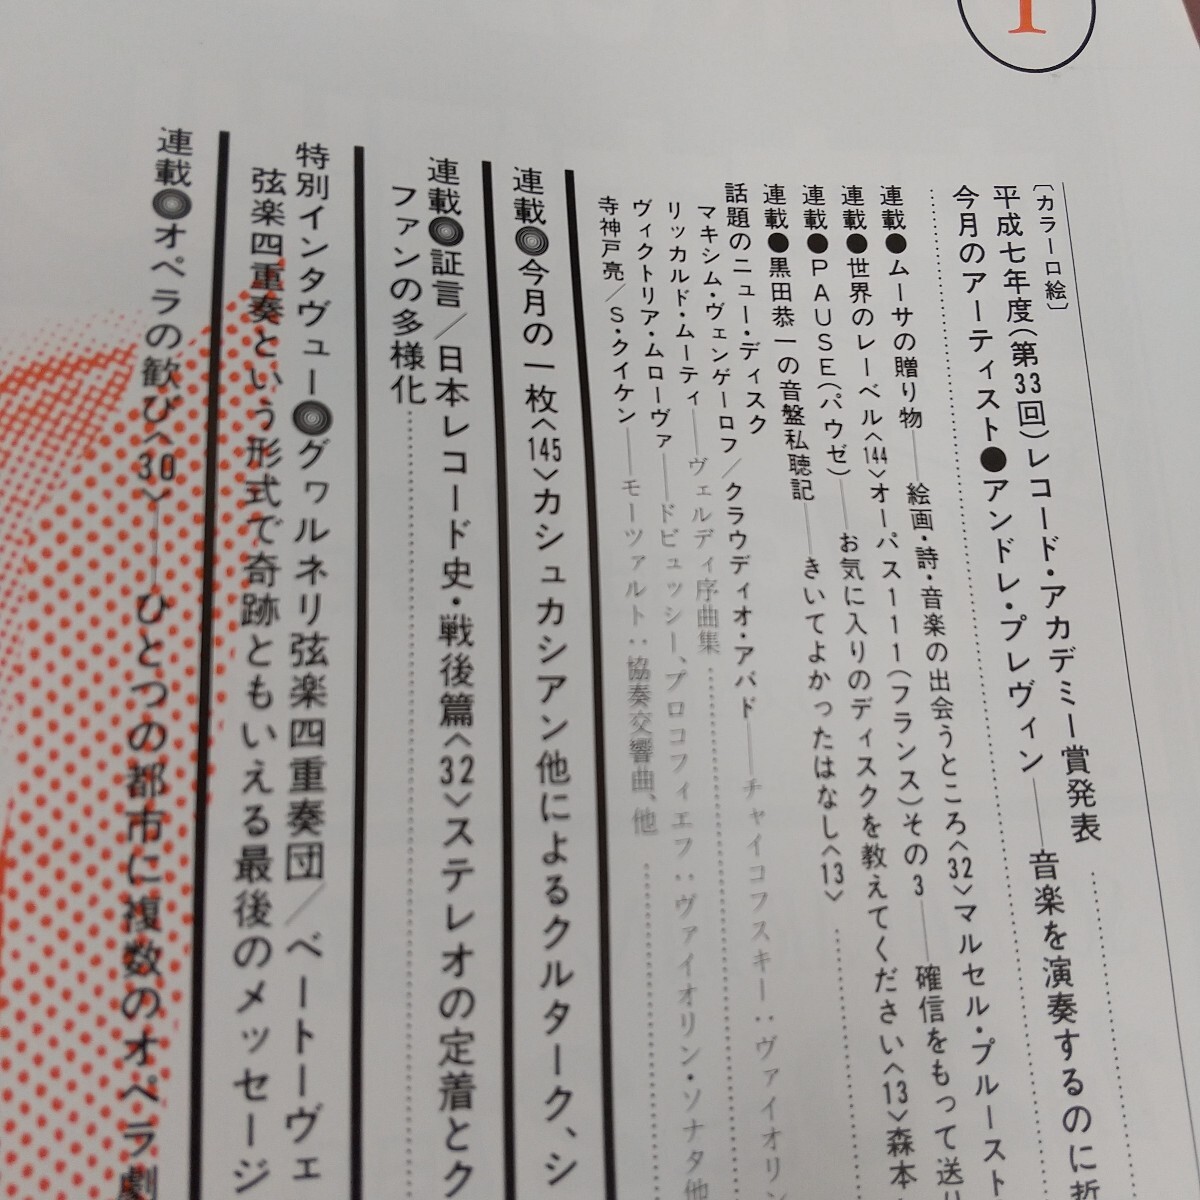 1
〔カラー口絵〕
平成七年度(第33回)レコード・アカデミー賞発表
今月のアーティスト●アンドレ・プレヴィン――音楽を演奏するのに
連載●ムーサの贈り物――絵画・詩・音楽の出会うところ〈32〉マルセル・プルースト
連載●世界のレーベル〈144〉オーパス111(フランス)その3――確信をもって送り
連載●PAUSE(パウゼ)――お気に入りのディスクを教えてください〈13〉森本
連載●黒田恭一の音盤私聴記――きいてよかったはなし〈13〉
話題のニュー・ディスク
マキシム・ヴェンゲーロフ/クラウディオ・アバド――チャイコフスキー:ヴァイオリン
リッカルド・ムーティ――ヴェルディ序曲集
ヴィクトリア・ムローヴァ――ドビュッシー、プロコフィエフ:ヴァイオリン・ソナタ他
寺神戸亮/S・クイケン――モーツァルト:協奏交響曲、他
連載◉今月の一枚〈145〉カシュカシアン他によるクルターク、シ
連載◉証言/日本レコード史・戦後篇〈32〉ステレオの定着とク
ファンの多様化
特別インタヴュー◉グァルネリ弦楽四重奏団/ベートーヴェ
弦楽四重奏という形式で奇跡ともいえる最後のメッセージ
連載◉オペラの歓び〈30〉――ひとつの都市に複数のオペラ劇